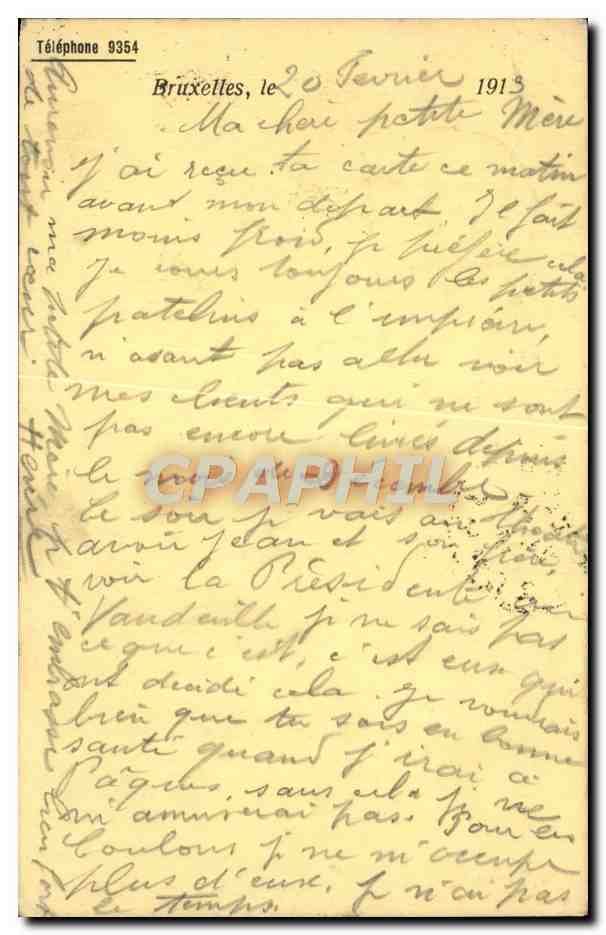 Téléphone 9354
Bruxelles, le 20 Fevrier 1913
Ma chère petite Mère
j'ai reçu ta carte ce matin
avant mon départ. Il fait
moins froid, je préfère cela
Je cours toujours les petits
patelins à l'
n'osant pas aller voir
mes clients qui ne sont
pas encore livrés depuis
le mois de Décembre
Le soir je vais au théâtre
avoir Jean et son frère,
voir la Présidente
Vaudeville je ne sais pas
ce que c'est, c'est eux qui
ont décidé cela. Je voudrais
bien que tu sois en bonne
santé quand j'irai à
Pâques, sans cela je ne
m'amuserai pas. Pour les
Loulous je ne m'occupe
plus d'eux. Je n'ai pas
le temps.
Aurevoir ma petite Mère je t'embrasse bien fort
de tout cœur.
Henri
CPAPHIL